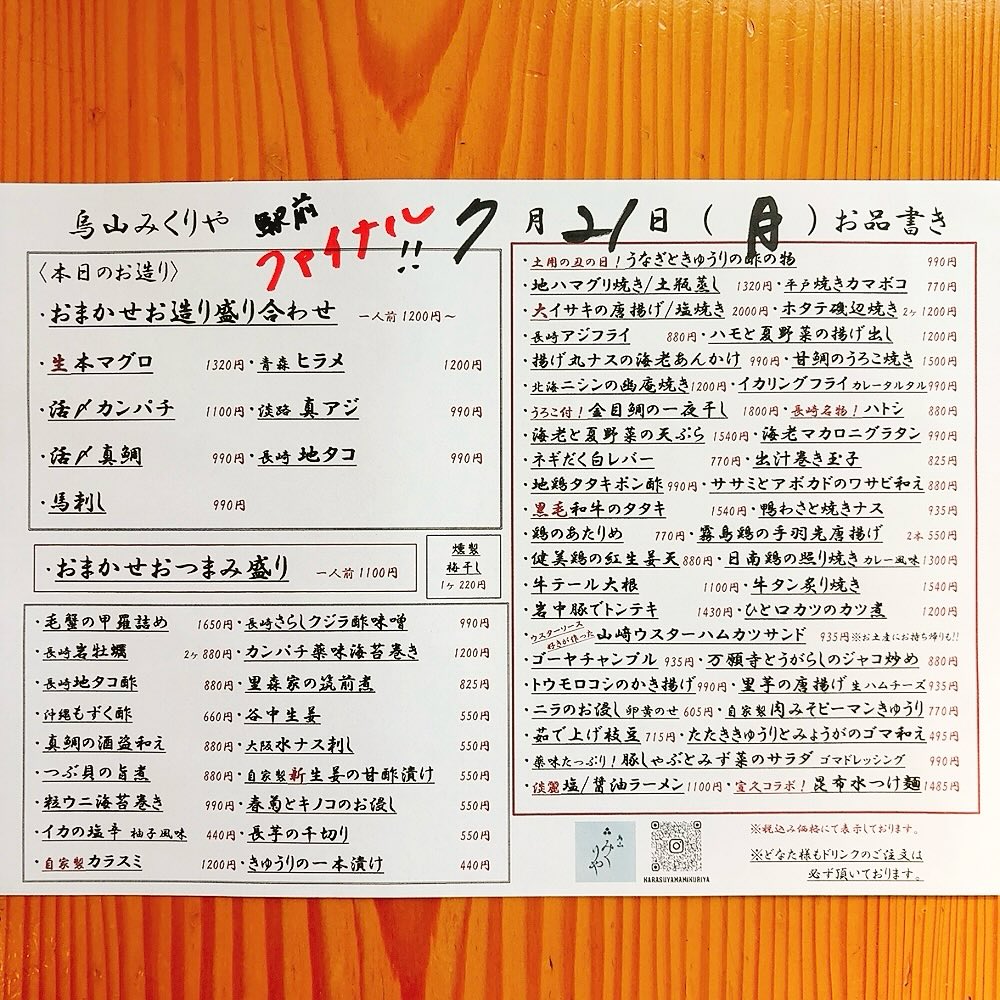 烏山みくりや 駅前 ファイナル!! 7月21日(月)お品書き
〈本日のお造り〉
・おまかせお造り盛り合わせ 一人前 1200円〜
・生本マグロ 1320円・青森 ヒラメ 1200円
・活〆カンパチ 1100円・淡路 真アジ 990円
・活〆真鯛 990円・長崎 地タコ 990円
・馬刺し 990円
・おまかせおつまみ盛り 一人前 1100円
燻製
梅干し
1ヶ 220円
・毛蟹の甲羅詰め 1650円・長崎さらしクジラ酢味噌 990円
・長崎岩牡蠣 2ヶ 880円・カンパチ薬味海苔巻き 1200円
・長崎地タコ酢 880円・里森家の筑前煮 825円
・沖縄もずく酢 660円・谷中生姜 550円
・真鯛の酒盗和え 880円・大阪水ナス刺し 550円
・つぶ貝の旨煮 880円・自家製新生姜の甘酢漬け 550円
・粒ウニ海苔巻き 990円・春菊とキノコのお浸し 550円
・イカの塩辛 柚子風味 440円・長芋の千切り 550円
・自家製カラスミ 1200円・きゅうりの一本漬け 440円
・土用の丑の日!うなぎときゅうりの酢の物 990円
・地ハマグリ焼き/土瓶蒸し 1320円・平戸焼きカマボコ 770円
・大イサキの唐揚げ/塩焼き 2000円・ホタテ磯辺焼き 2ヶ 1200円
・長崎アジフライ 880円・ハモと夏野菜の揚げ出し 1200円
・揚げ丸ナスの海老あんかけ 990円・甘鯛のうろこ焼き 1500円
・北海ニシンの幽庵焼き 1200円・イカリングフライ カレータルタル 990円
・うろこ付!金目鯛の一夜干し 1800円・長崎名物!ハトシ 880円
・海老と夏野菜の天ぷら 1540円・海老マカロニグラタン 990円
・ネギだく白レバー 770円・出汁巻き玉子 825円
・地鶏タタキポン酢 990円・ササミとアボカドのワサビ和え 880円
・黒毛和牛のタタキ 1540円・鴨わさと焼きナス 935円
・鶏のあたりめ 770円・霧島鶏の手羽先唐揚げ 2本 550円
・健美鶏の紅生姜天 880円・日南鶏の照り焼き カレー風味 1300円
・牛テール大根 1100円・牛タン炙り焼き 1540円
・岩中豚でトンテキ 1430円・ひと口カツのカツ煮 1200円
・ウスターソース好きが作った 山崎ウスターハムカツサンド 935円※お土産にお持ち帰りも!!
・ゴーヤチャンプル 935円・万願寺とうがらしのジャコ炒め 880円
・トウモロコシのかき揚げ 990円・里芋の唐揚げ 生ハムチーズ 935円
・ニラのお浸し 卵黄のせ 605円・自家製肉みそピーマンきゅうり 770円
・茹で上げ枝豆 715円・たたききゅうりとみょうがのゴマ和え 495円
・薬味たっぷり!豚しゃぶとみず菜のサラダ ゴマドレッシング 990円
・淡麗 塩/醤油ラーメン 1100円・宝久コラボ!昆布水つけ麺 1485円
みくりや
KARASUYAMAMIKURIYA
※税込み価格にて表示しております。
※どなた様もドリンクのご注文は
必ず頂いております。